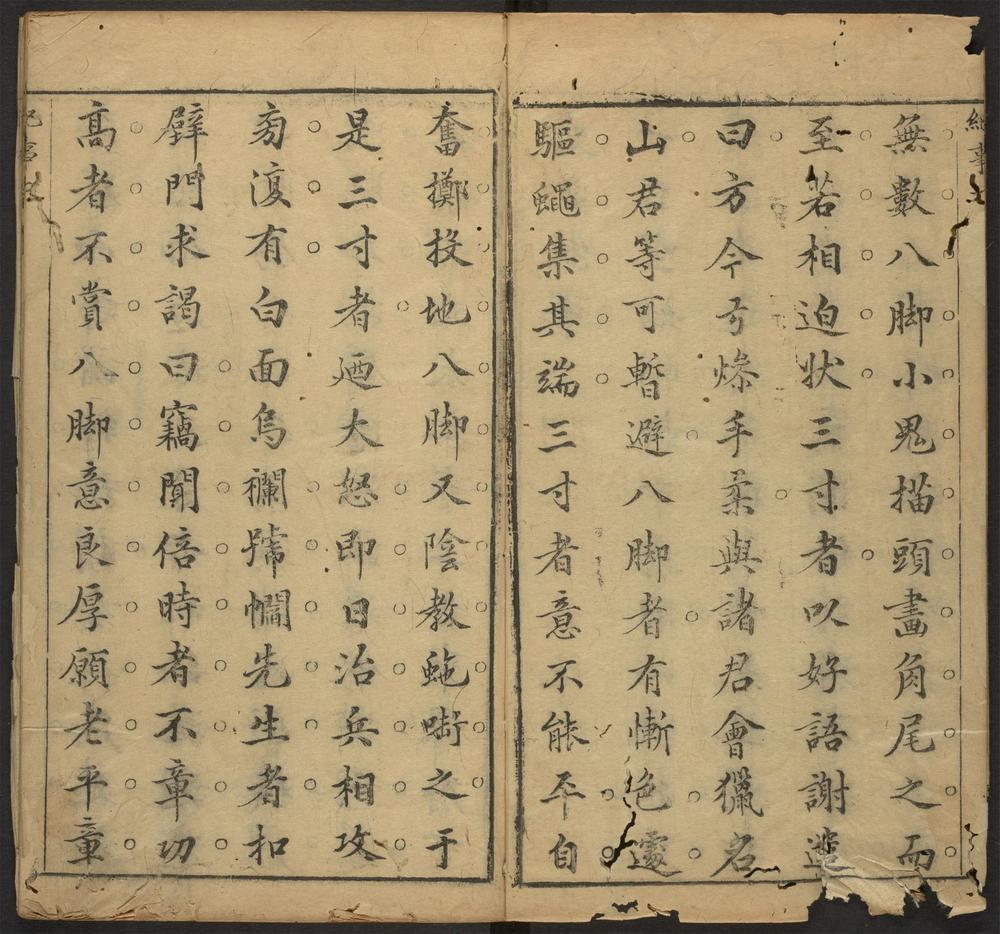 無數八脚小鬼描頭畫角尾之而
至若相迫状三寸者以好語謝遣
曰方今弓燥手柔與諸君會獵名
山君等可暫避八脚者有慚色遽
驅蠅集其端三寸者意不能平自
奮擲投地八脚又陰教虵嚙之于
是三寸者廼大怒即日治兵相攻
有白面烏襴號㡚先生者扣
門求謁曰竊聞倍時者不章功
高者不賞八脚意良厚願老平章